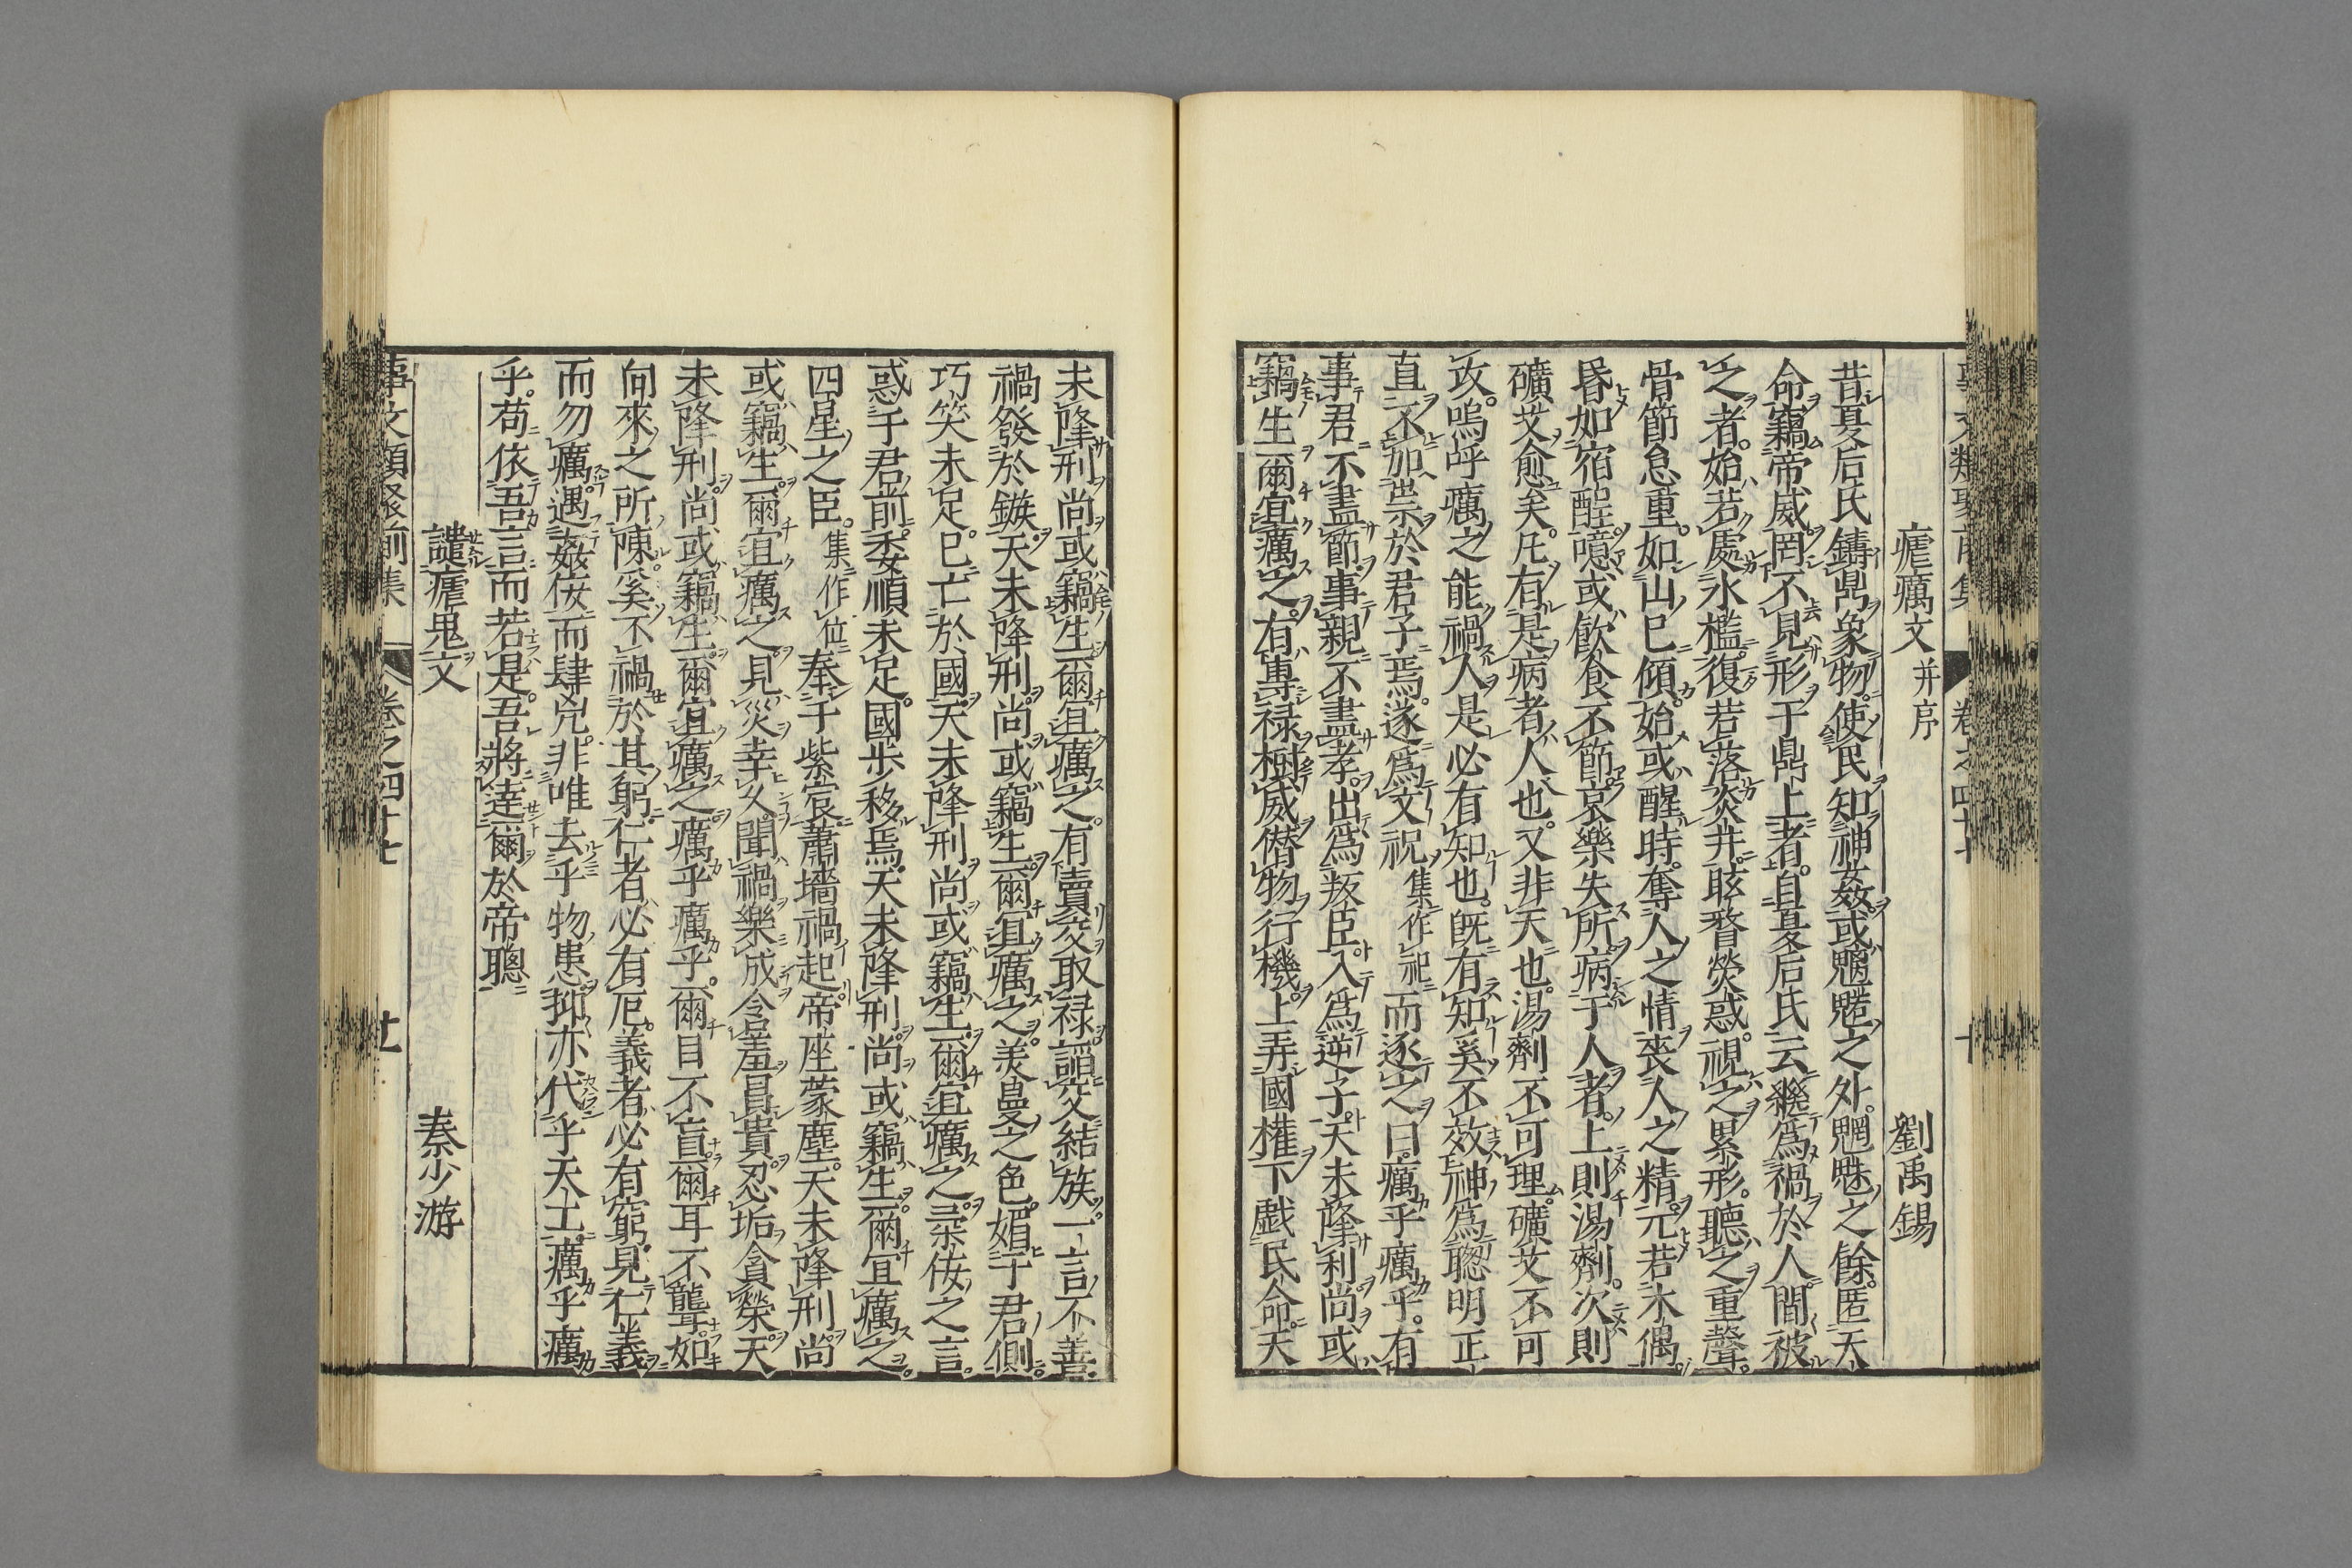 瘧癘文 并序 劉禹錫
昔夏后氏鑄鼎象物使民知神姦或魑魅之外魍魎之餘匿天
命竊帝威罔不見形于鼎上者自夏后氏云繼爲禍於人間被
之者始若處氷檻復若落炎井眩瞀熒惑視之累形聽之重聲
骨節怠重如山巳傾始或醒時奪人之情喪人之精元若木偶
昏如宿酲噫或飮食不節哀樂失所病于人者上則湯劑次則
礦艾愈矣凡有是病者人也又非天也湯劑不可理礦艾不可
攻嗚呼癘之能禍人是必有知也旣有知奚不效神爲聰明正
直不加祟於君子焉遂爲文祝集作祀而逐之曰癘乎癘乎有
事君不盡節事親不盡孝出爲叛臣入爲逆子天未降利尚或
竊生爾宜癘之有專禄樹威僣物行機上弄國權下戲民命天
未降刑尚或竊生爾宜癘之有賣交取禄諂交結族一言不善
禍發於鏃天未降刑尚或竊生爾宜癘之美曼之色媚于君側
巧笑未足巳亡於國天未降刑尚或竊生爾宜癘之柔侫之言
惑于君前委順未足國步移焉天未降刑尚或竊生爾宜癘之
四星之臣集作位奉于紫宸蕭墻禍起帝座蒙塵天未降刑尚
或竊生爾宜癘之見災幸久聞禍樂成含羞冒貴忍垢貪榮天
未降刑尚或竊生爾宜癘之癘乎癘乎爾目不盲爾耳不聾如
向來之所陳奚不禍於其躬仁者必有厄義者必有窮見仁義
而勿癘遇姦侫而肆兇非唯去乎物患抑亦代乎天工癘乎癘
乎苟依吾言而若是吾將達爾於帝聰
譴瘧鬼文 秦少游
事文類聚前集 卷之四十七